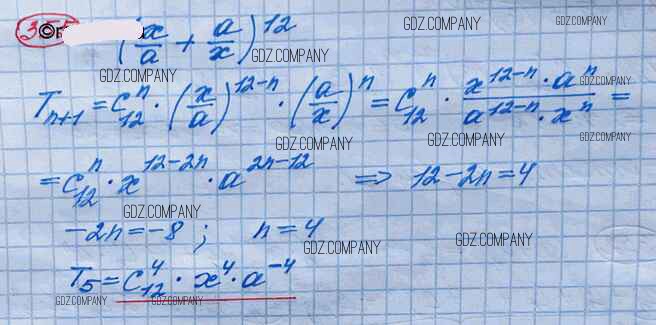 3 ©
(x/a + a/x)^12
GDZ.COMPANY
GDZ.COMPANY
GDZ.COMPANY
T_{n+1} = C_{12}^n · (x/a)^{12-n} · (a/x)^n = C_{12}^n · (x^{12-n} · a^n)/(a^{12-n} · x^n) =
GDZ.COMPANY
GDZ.COMPANY
GDZ.COMPANY
GDZ.COMPANY
= C_{12}^n · x^{12-2n} · a^{2n-12} => 12-2n=4
GDZ.COMPANY
-2n=-8 ; n=4
GDZ.COMPANY
GDZ.COMPANY
T_5 = C_{12}^4 · x^4 · a^{-4}
GDZ.COMPANY
GDZ.COMPANY